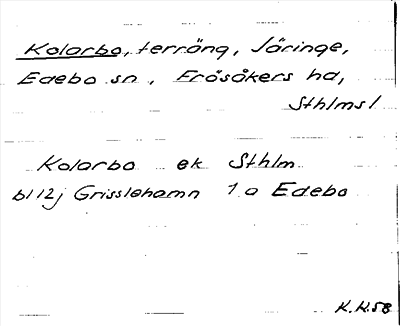 Kolarbo, terräng, Järinge,
Edebo sn, Frösåkers hd,
Sthlms l
Kolarbo ek Sthlm
bl 12j Grisslehamn 1 a Edebo
K.H.58